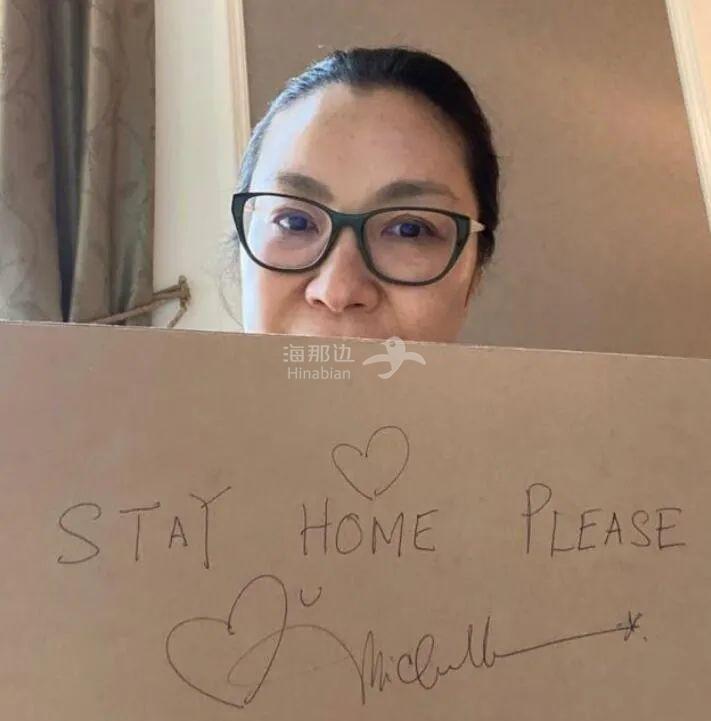 海那边
Hinabian
STAY HOME PLEASE
Michelle